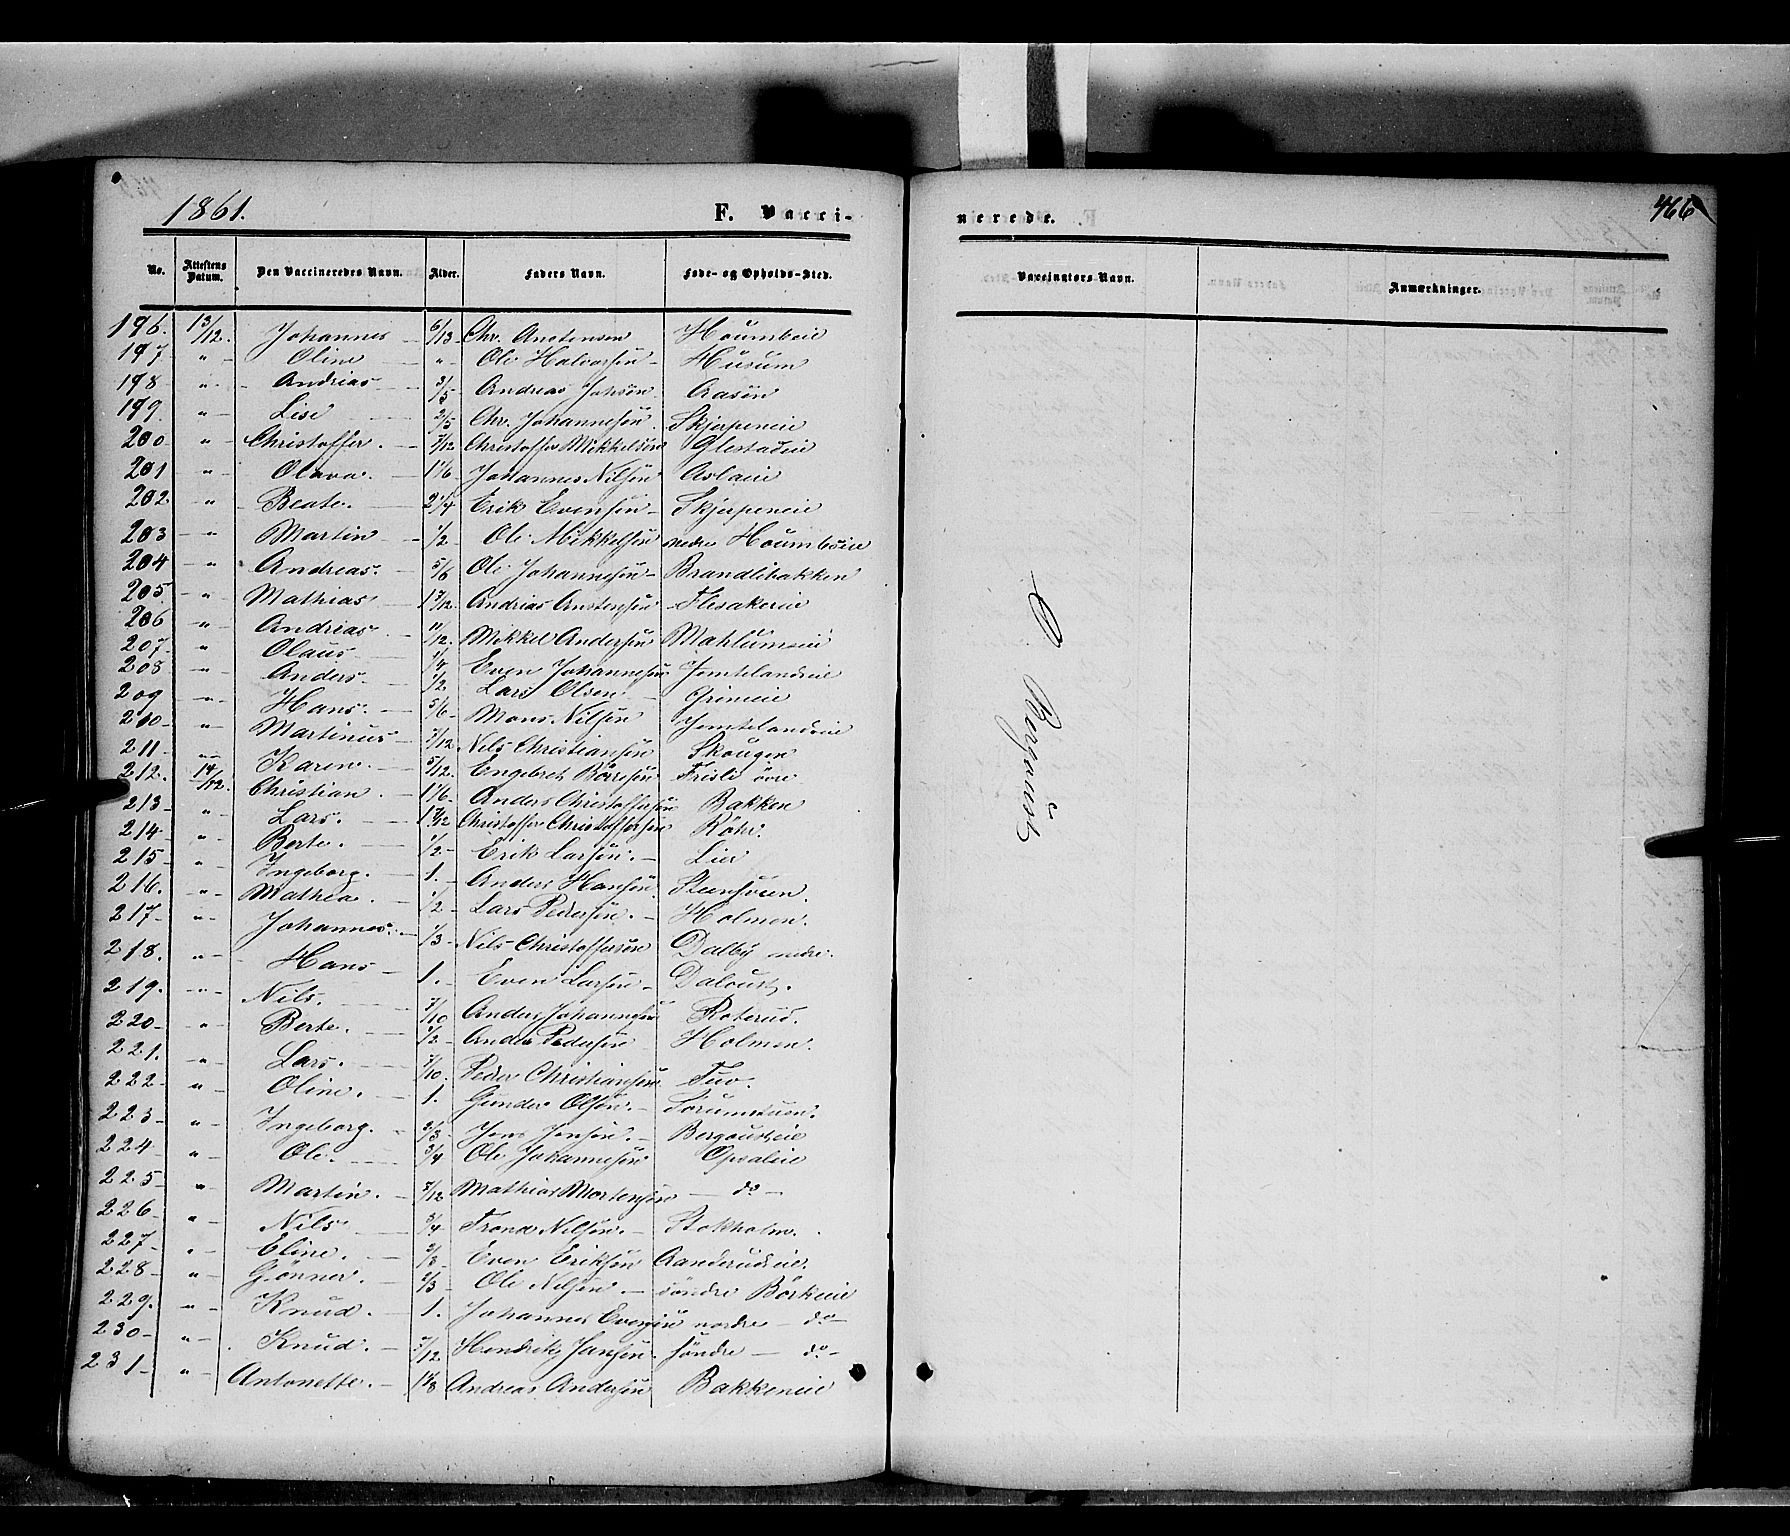 1861. F. Vacci- nerede. 466
No. Attestens Datum. Den Vaccineredes Navn. Alder. Faders Navn. Føde- og Opholds-Sted. Vaccinators Navn. Anmærkninger.
196. 13/12. Johannes 6/13 Chr. Anstensen Houmbeie
197 " Oline " Ole Halvorsen Husum
198 " Andreas 3/5 Andreas Johsen Aasen
199 " Lise 2/5 Chr. Johannesen Skjerpeneie
200 " Christoffer. 7/12 Christoffer Mikkelsen Glestadeie
201 " Olava. 1 1/6 Johannes Nilsen Aslaeie
202 " Beate. 2 1/4 Erik Evensen Skjerpeneie
203 " Martin 1/2 Ole Mikkelsen nedre Houmbeie
204 " Andreas. 5/6 Ole Johannesen Brandlibakken
205 " Mathias 1 7/12 Andreas Anstensen Flesakereie
206 " Andreas 11/12 Mikkel Andersen Mahlumseie
207 " Olaus 1/4 Even Johannesen Jemtelandseie
208 " Anders 1/2 Lars Olsen Grimeie
209 " Hans. 5/6 Mons Nilsen Jemtelandseie
210 " Martinus 7/12 Nils Christiansen Skougen
211 " Karen. 5/12. Engebret Børresen Frisli øvre
212. 14/12. Christian 1 1/6 Anders Christoffersen Bakken
213 " Lars. 1 7/12 Christoffer Christoffersen Røhr.
214 " Berte. 1/2 Erik Larsen. Lier
215 " Ingeborg. 1. Anders Hansen Steensveen.
216. " Mathea 1/2 Lars Pedersen. Holmen.
217 " Johannes. 1/3 Nils Christoffersen Dalby nedre.
218. " Hans 1. Even Larsen Daloust.
219. " Nils. 7/10 Anders Johannesen Roterud.
220 " Berte. 1/2 Anders Pedersen Holmen.
221. " Lars. 7/10. Peder Christiansen Tuv.
222 " Oline. 1. Gunder Olsen. Forumstuen.
223 " Ingeborg. 2/3 Jens Jensen. Bergousteie
224 " Ole. 3/4 Ole Johannesen Opsaleie
225 " Martin. 7/12 Mathias Mortensen do
226 " Nils 3/4 Trond Nilsen. Stokholm.
227 " Eline. 2/3 Even Eriksen Aanderudeie.
228 " Gønner. 2/3 Ole Nilsen. søndre Börkeeie
229. " Knud. 1. Johannes Evensen nordre do
230 " Knud. 7/12 Hendrik Jansen. søndre do
231 " Antonette. 1 1/8 Andreas Andersen Bakkeneie
O. Bergseius